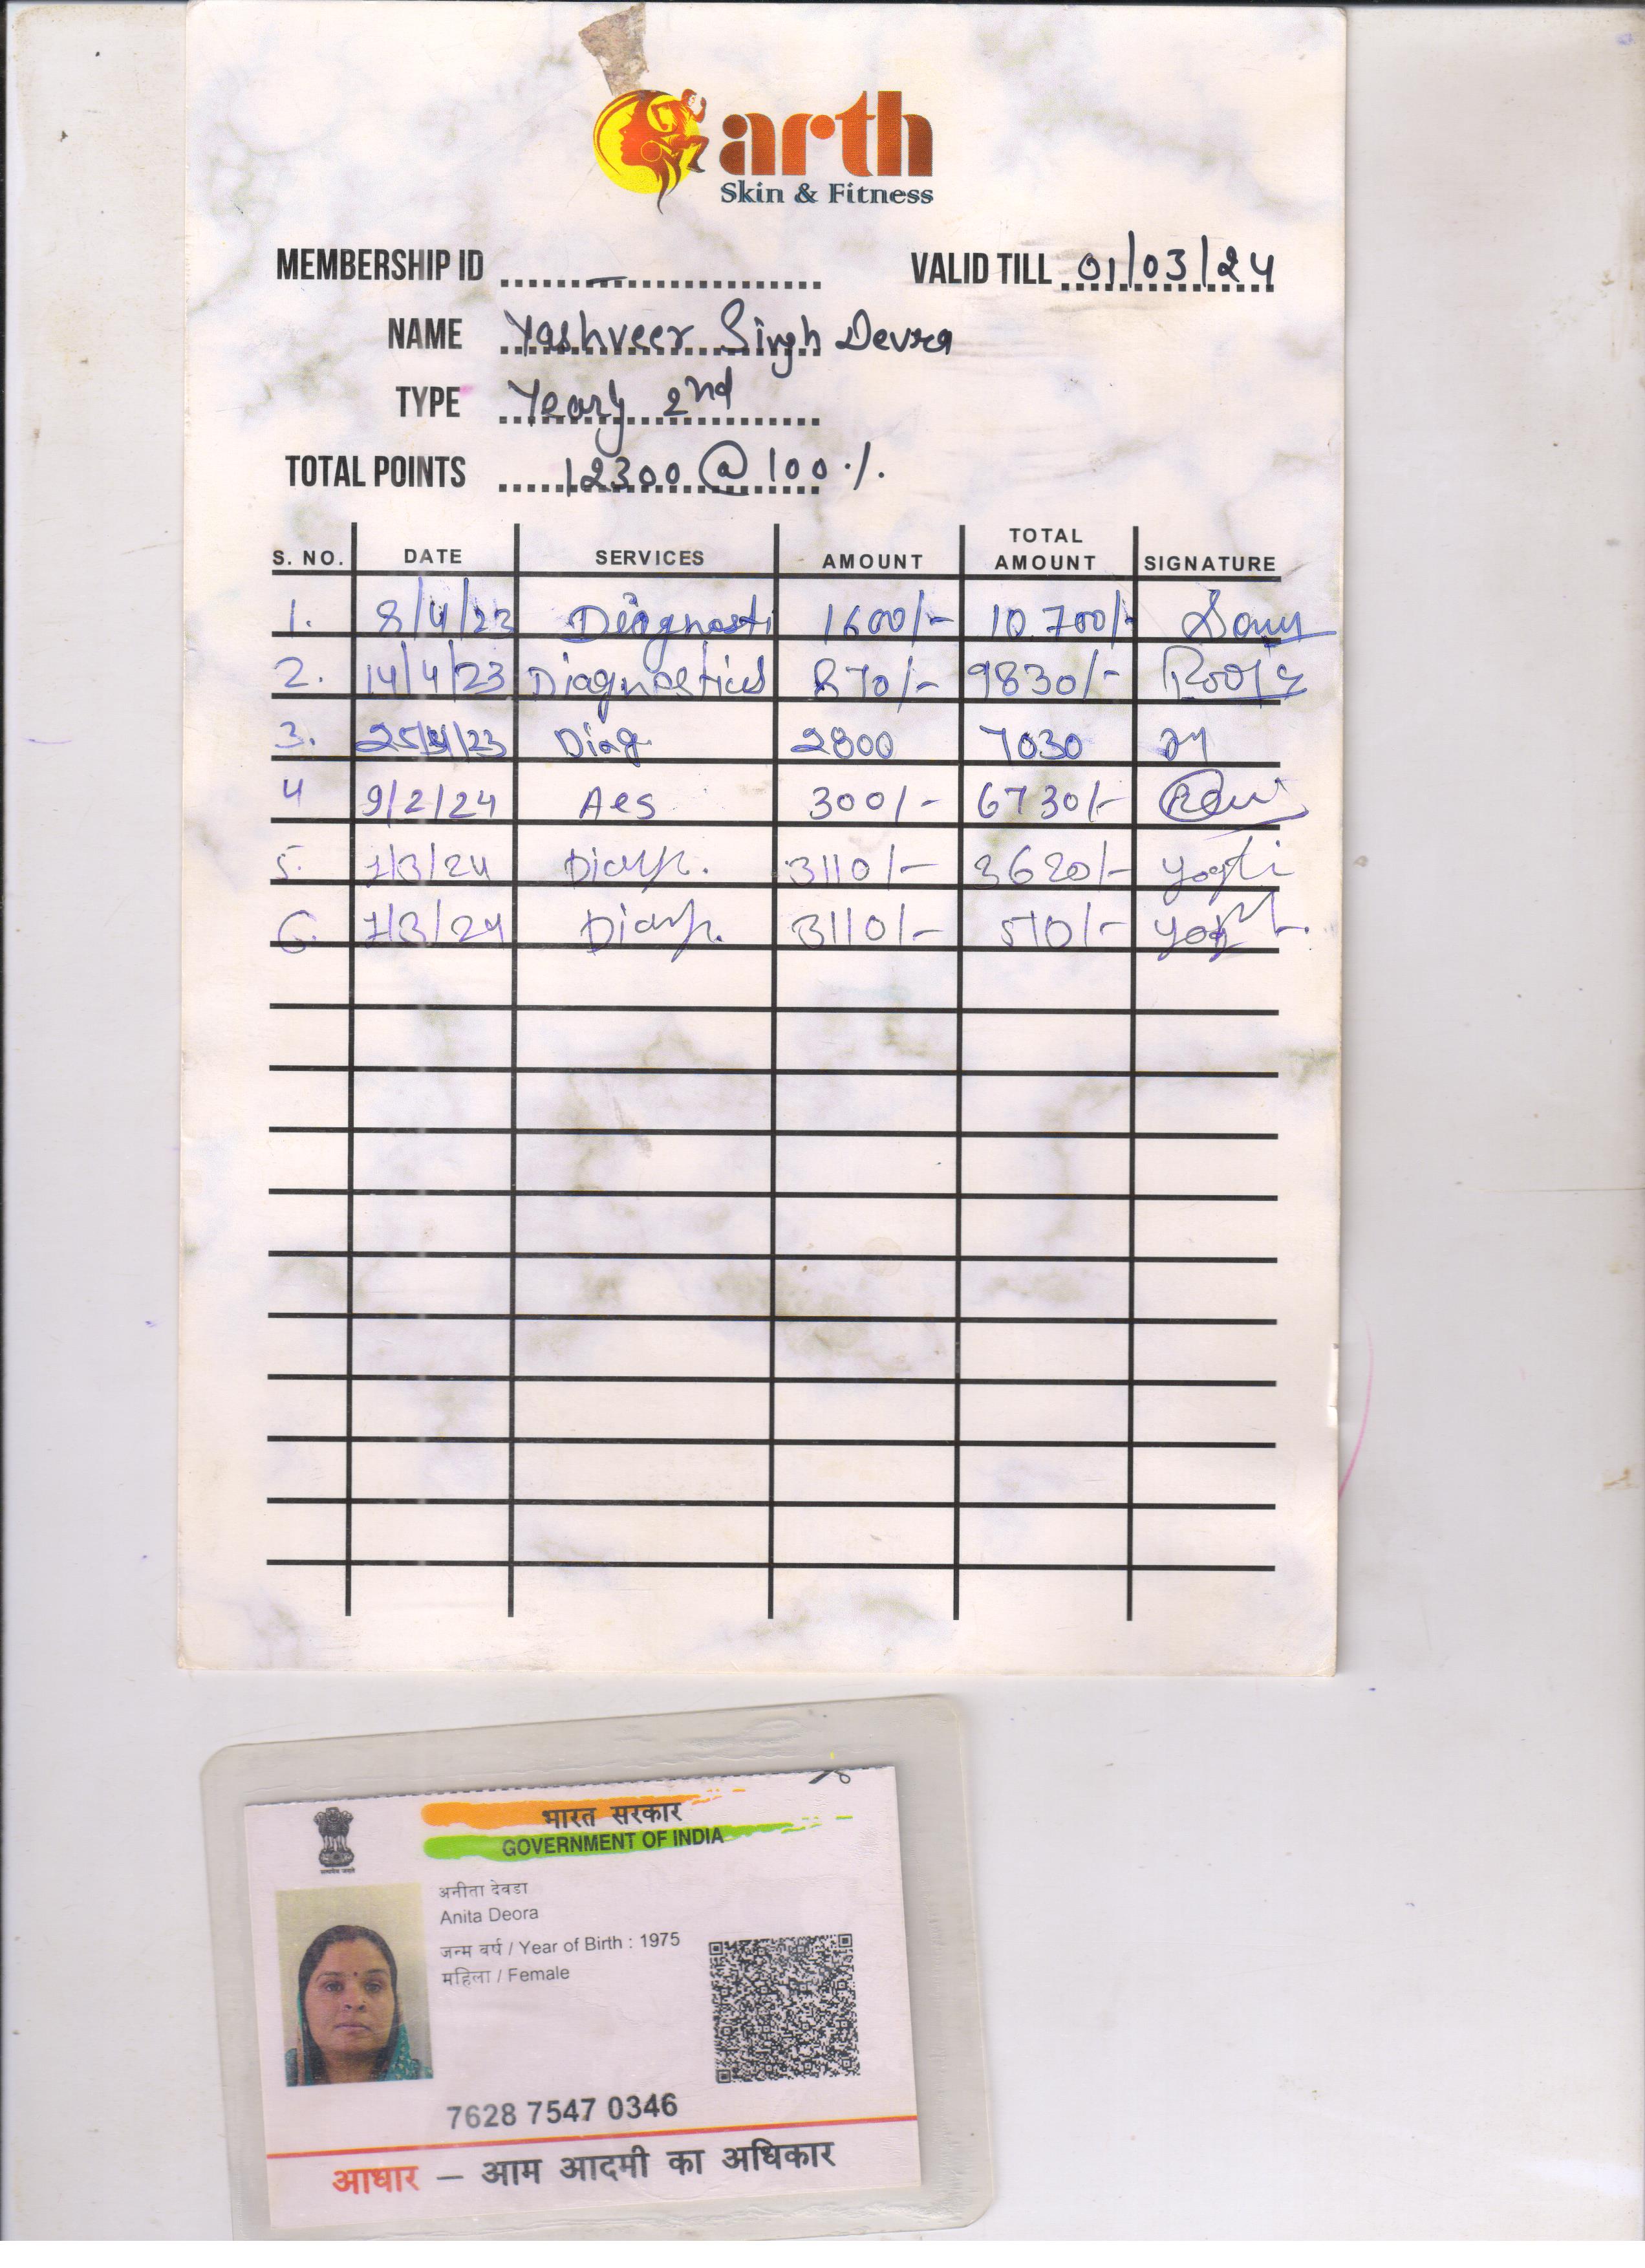 arth
Skin & Fitness
MEMBERSHIP ID – VALID TILL 01/03/24
NAME Yashveer Singh Devra
TYPE Yearly 2nd
TOTAL POINTS 12300 @ 100 %
S. NO. DATE SERVICES AMOUNT TOTAL AMOUNT SIGNATURE
1. 8/4/23 Diagnosti 1600/- 10700/-
2. 14/4/23 Diagnostics 870/- 9830/-
3. 25/4/23 Diag 2800 7030
4 9/2/24 Aes 300/- 6730/-
5. 1/3/24 3110/- 3620/- Yogti
6. 1/3/24 3110/- 510/-
भारत सरकार
GOVERNMENT OF INDIA
अनीता देवडा
Anita Deora
जन्म वर्ष / Year of Birth : 1975
महिला / Female
7628 7547 0346
आधार – आम आदमी का अधिकार